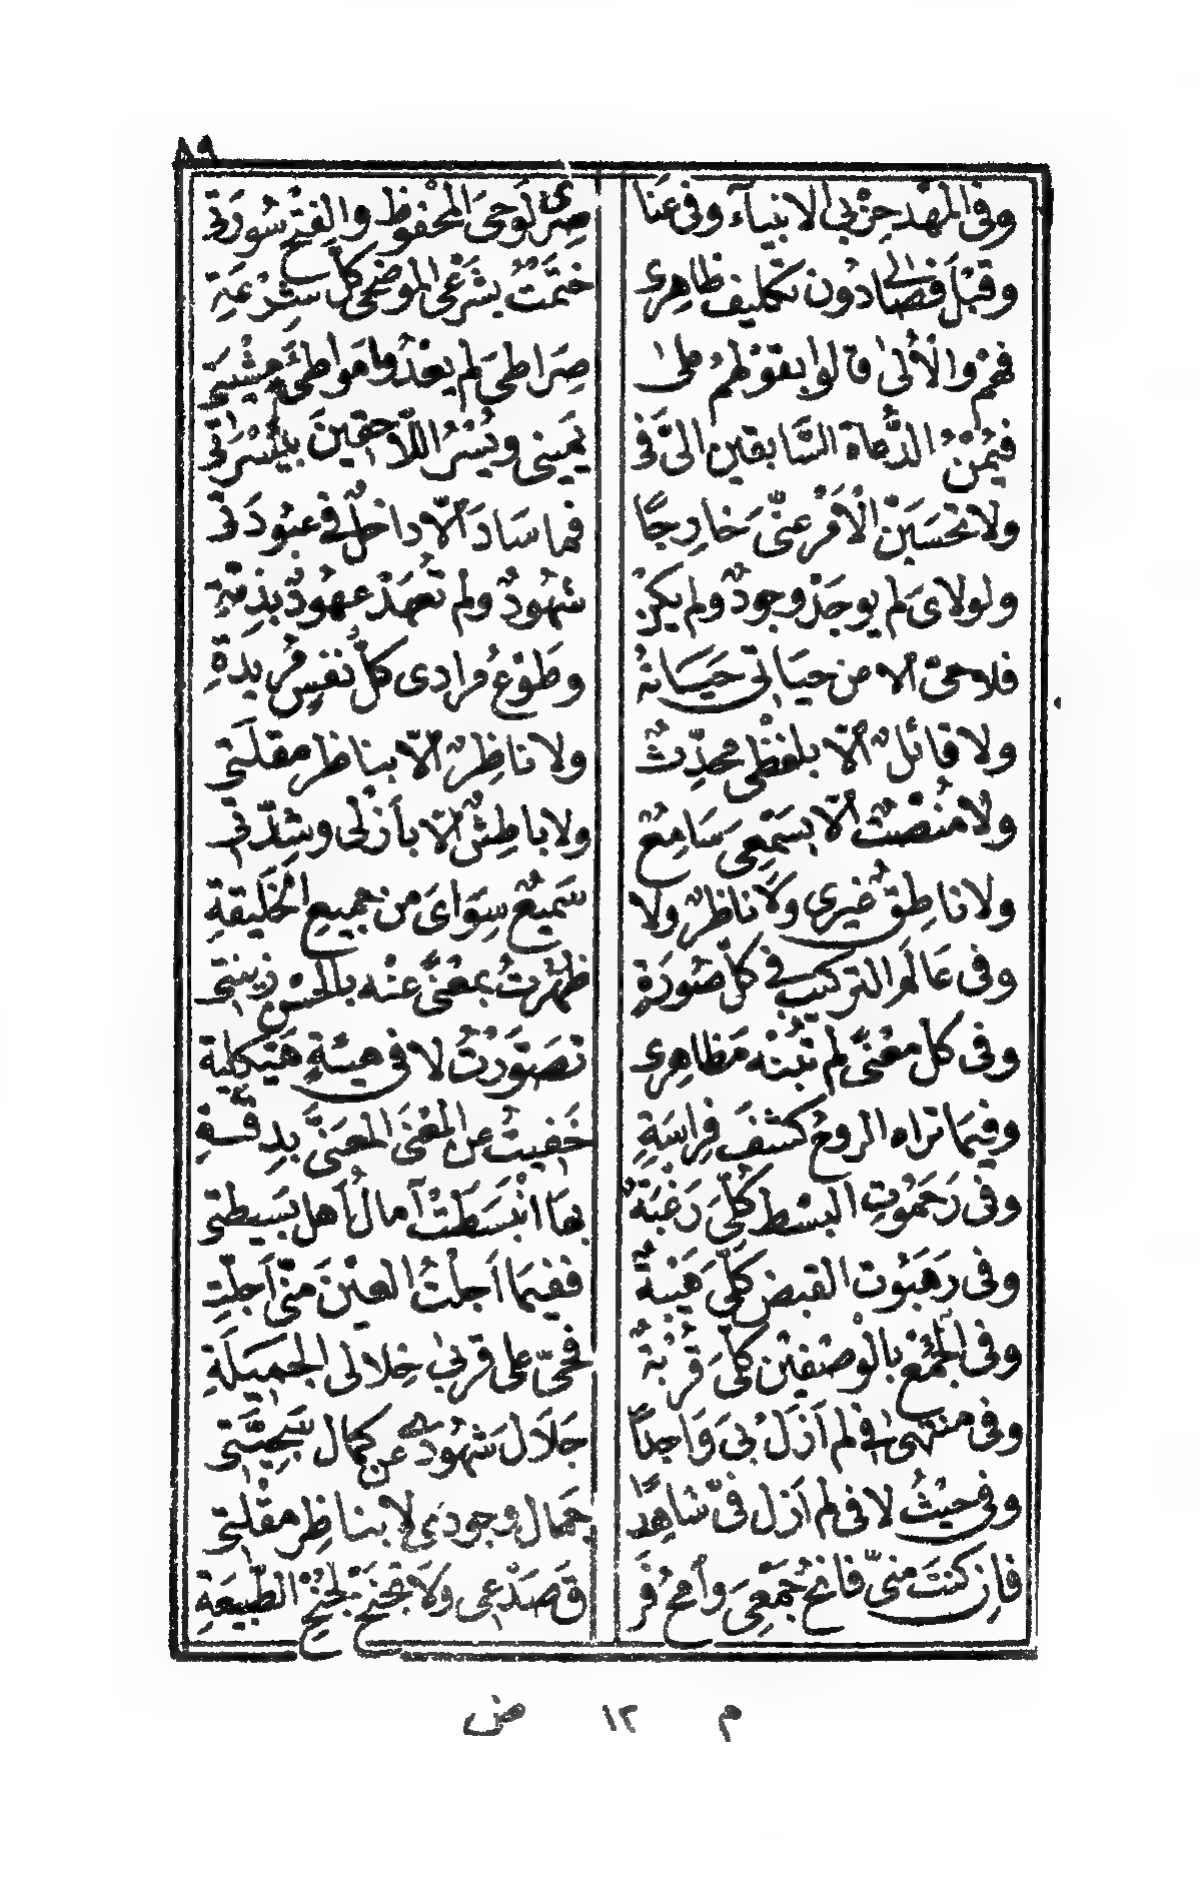 ٨٩
وفى المهد حزبى الانبياء وفى عنا صرى لوحى المحفوظ والفتح سورتى
وقبل فصالى دون تكليف ظاهرى ختمت بشرعى الموضحى كل شرعة
فهم والالى قالوا بقولهم على صراطى لم يعدوا مواطئ مشيتى
فيمن الدعاة السابقين الىّ فى يمينى ويسر اللاحقين بيسرتى
ولا تحسبنّ الامر عنى خارجا فما ساد الّا داخل فى عبودتى
ولولاى لم يوجد وجود ولم يكن شهود ولم تعهد عهود بذمة
فلا حىّ الا من حياتى حياته وطوع مرادى كل نفس مريدة
ولا قائل الّا بلفظى محدّث ولا ناظر الّا بناظر مقلتى
ولا منصت الّا بسمعى سامع ولا باطش الّا بأزلى وشدّتى
ولا ناطق غيرى ولا ناظر ولا سميع سواى من جميع الخليقة
وفى عالم التركيب فى كل صورة ظهرت بمعنى عنه بالحسن زينتى
وفى كل معنى لم تبنه مظاهرى تصورت لا فى هيئة هيكلية
وفيما تراه الروح كشف فراسة خفيت عن المعنى المعنّى بدقة
وفى رحموت البسط كلى رغبة بها انبسطت آمال أهل بسيطتى
وفى رهبوت القبض كلى هيبة ففيما اجلت العين منى اجلت
وفى الجمع بالوصفين كلى قربة فحىّ على قربى خلالى الجميلة
وفى منتهى فى لم ازل بى واجدا جلال شهودى عن كمال سجيتى
وفى حيث لا فى لم ازل فىّ شاهدا جمال وجودى لا بناظر مقلتى
فان كنت منى فانح جمعى وامح فر ق صدعى ولا تجنح لجنح الطبيعة
م ١٢ ض